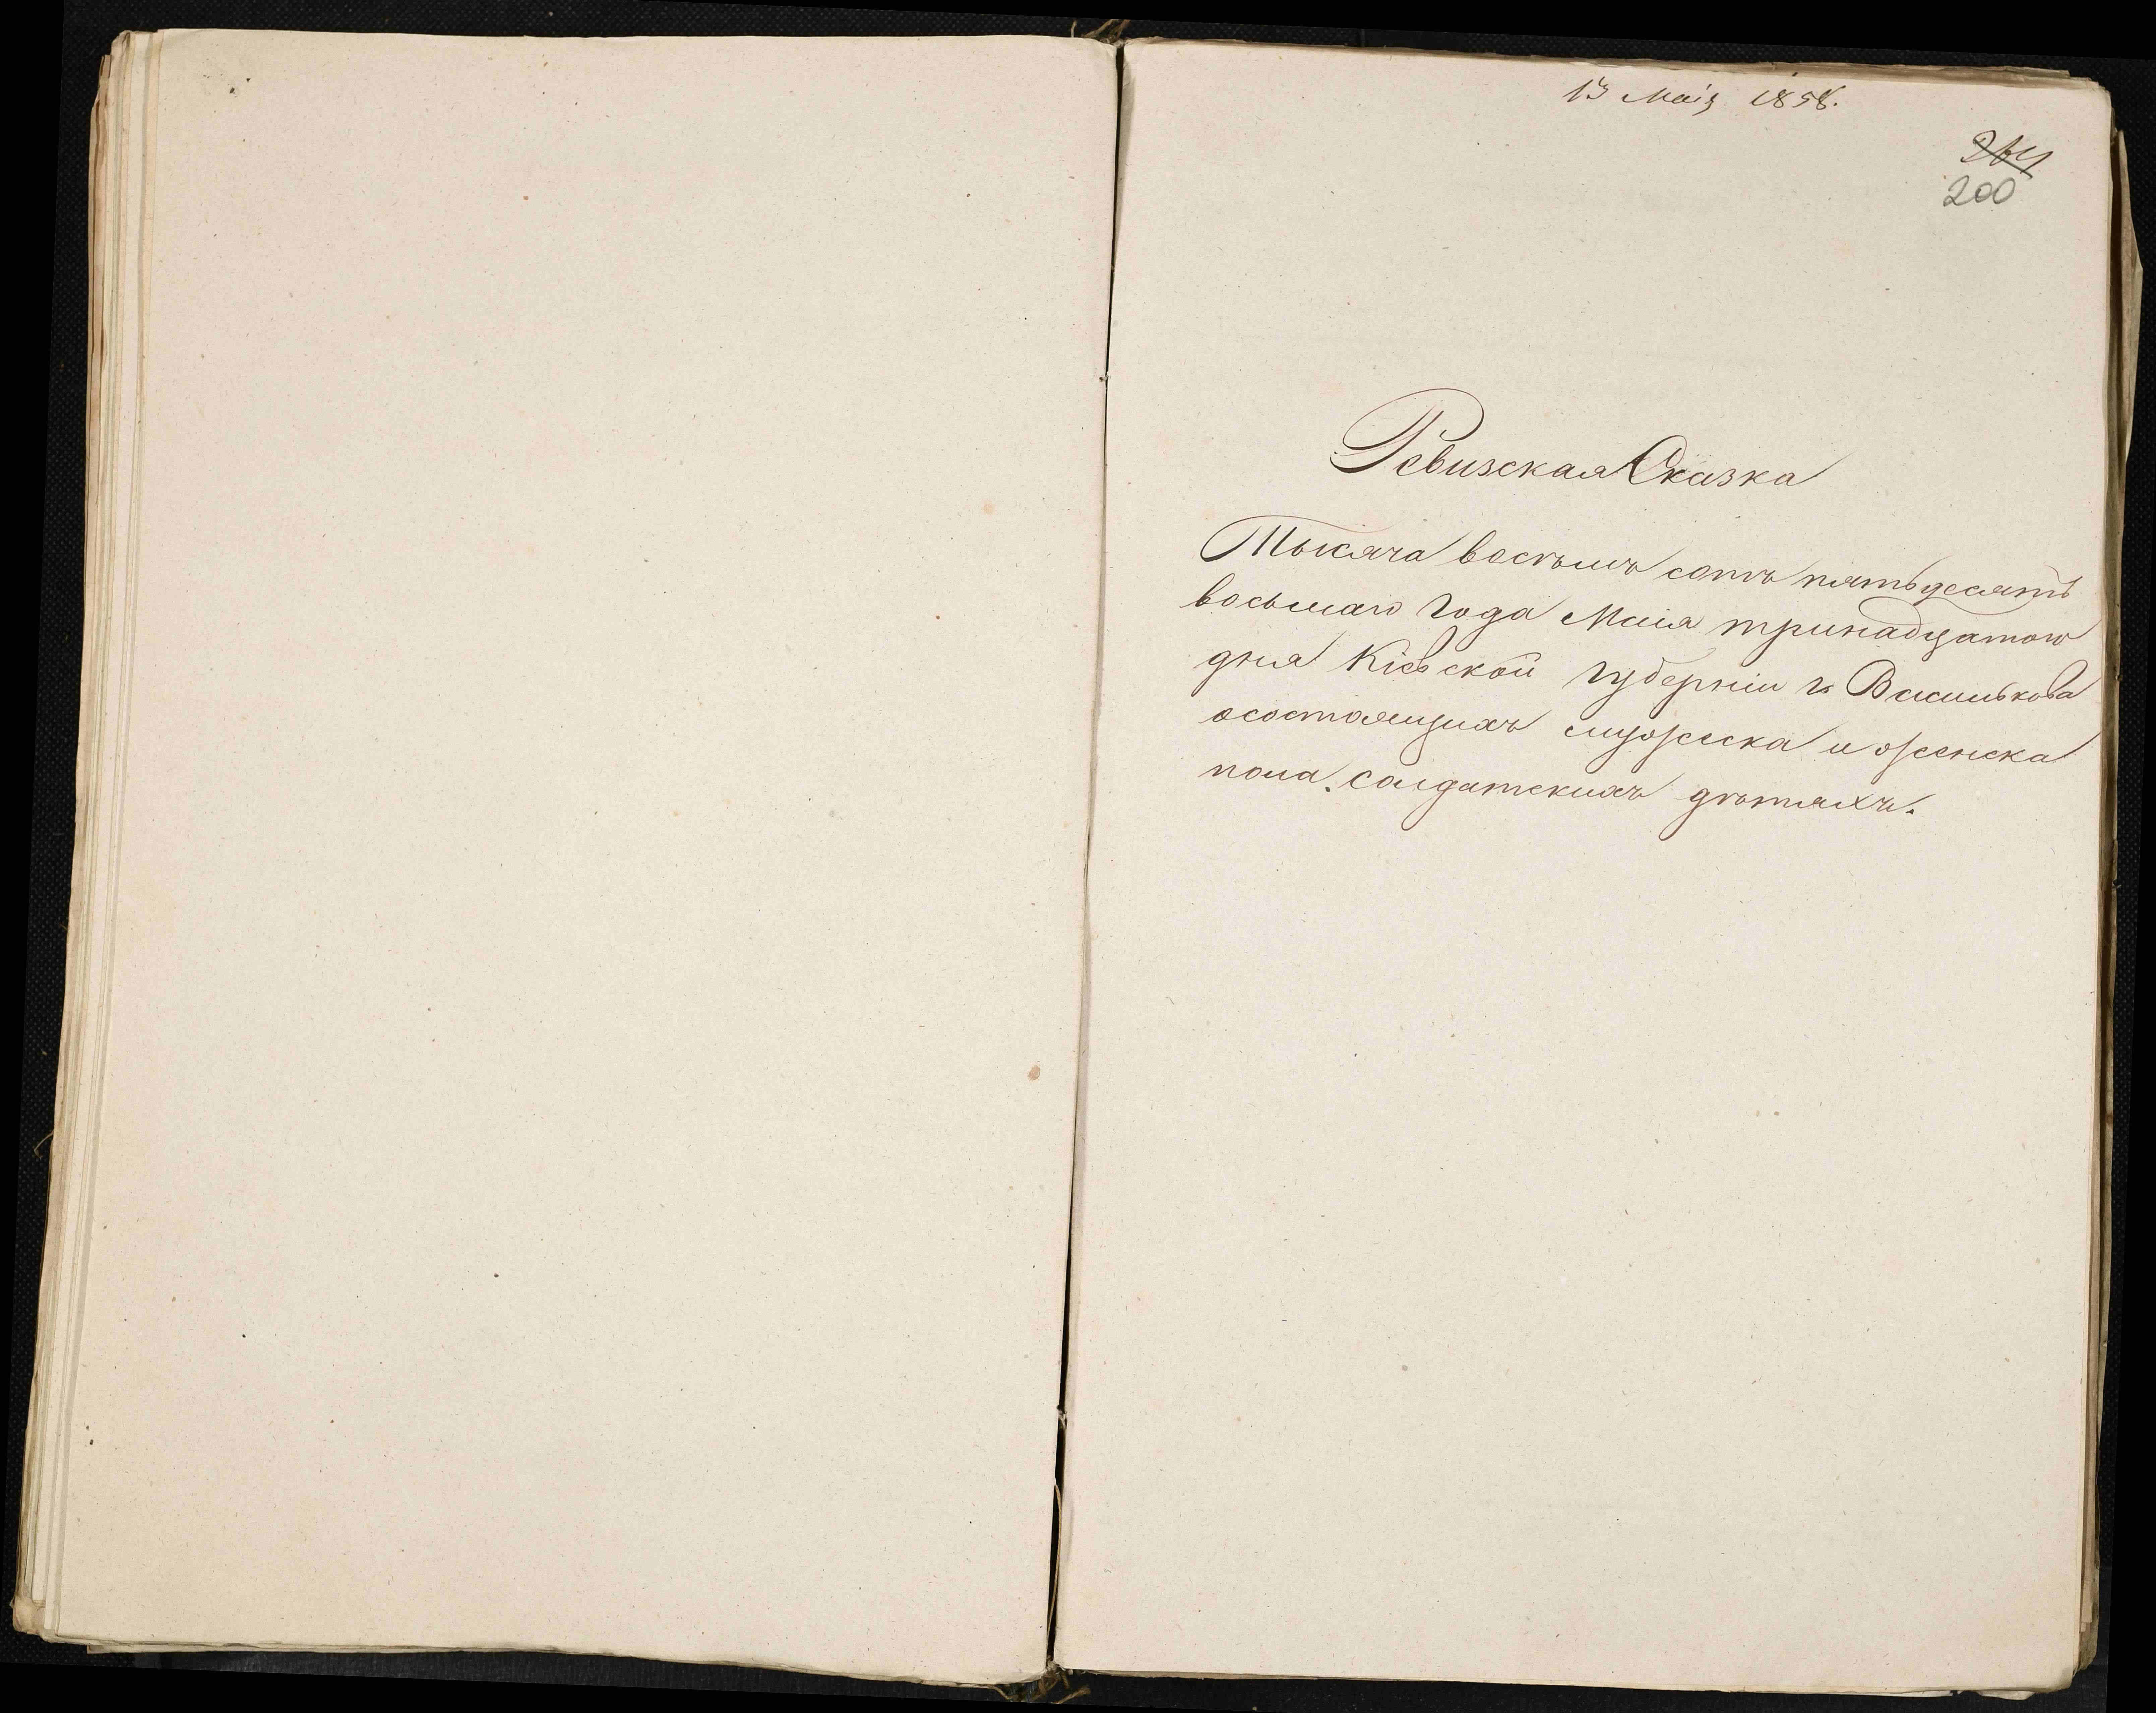 13 Маія 1858.
200
Ревизская Сказка
Тысяча восѣмъ сотъ пятьдесятъ
восьмаго года Маия тринадцатого
дня Кіевской губерніи г. Василькова
осостаящихъ мужеска и женска
пола. Салдатскихъ дѣтяхъ.